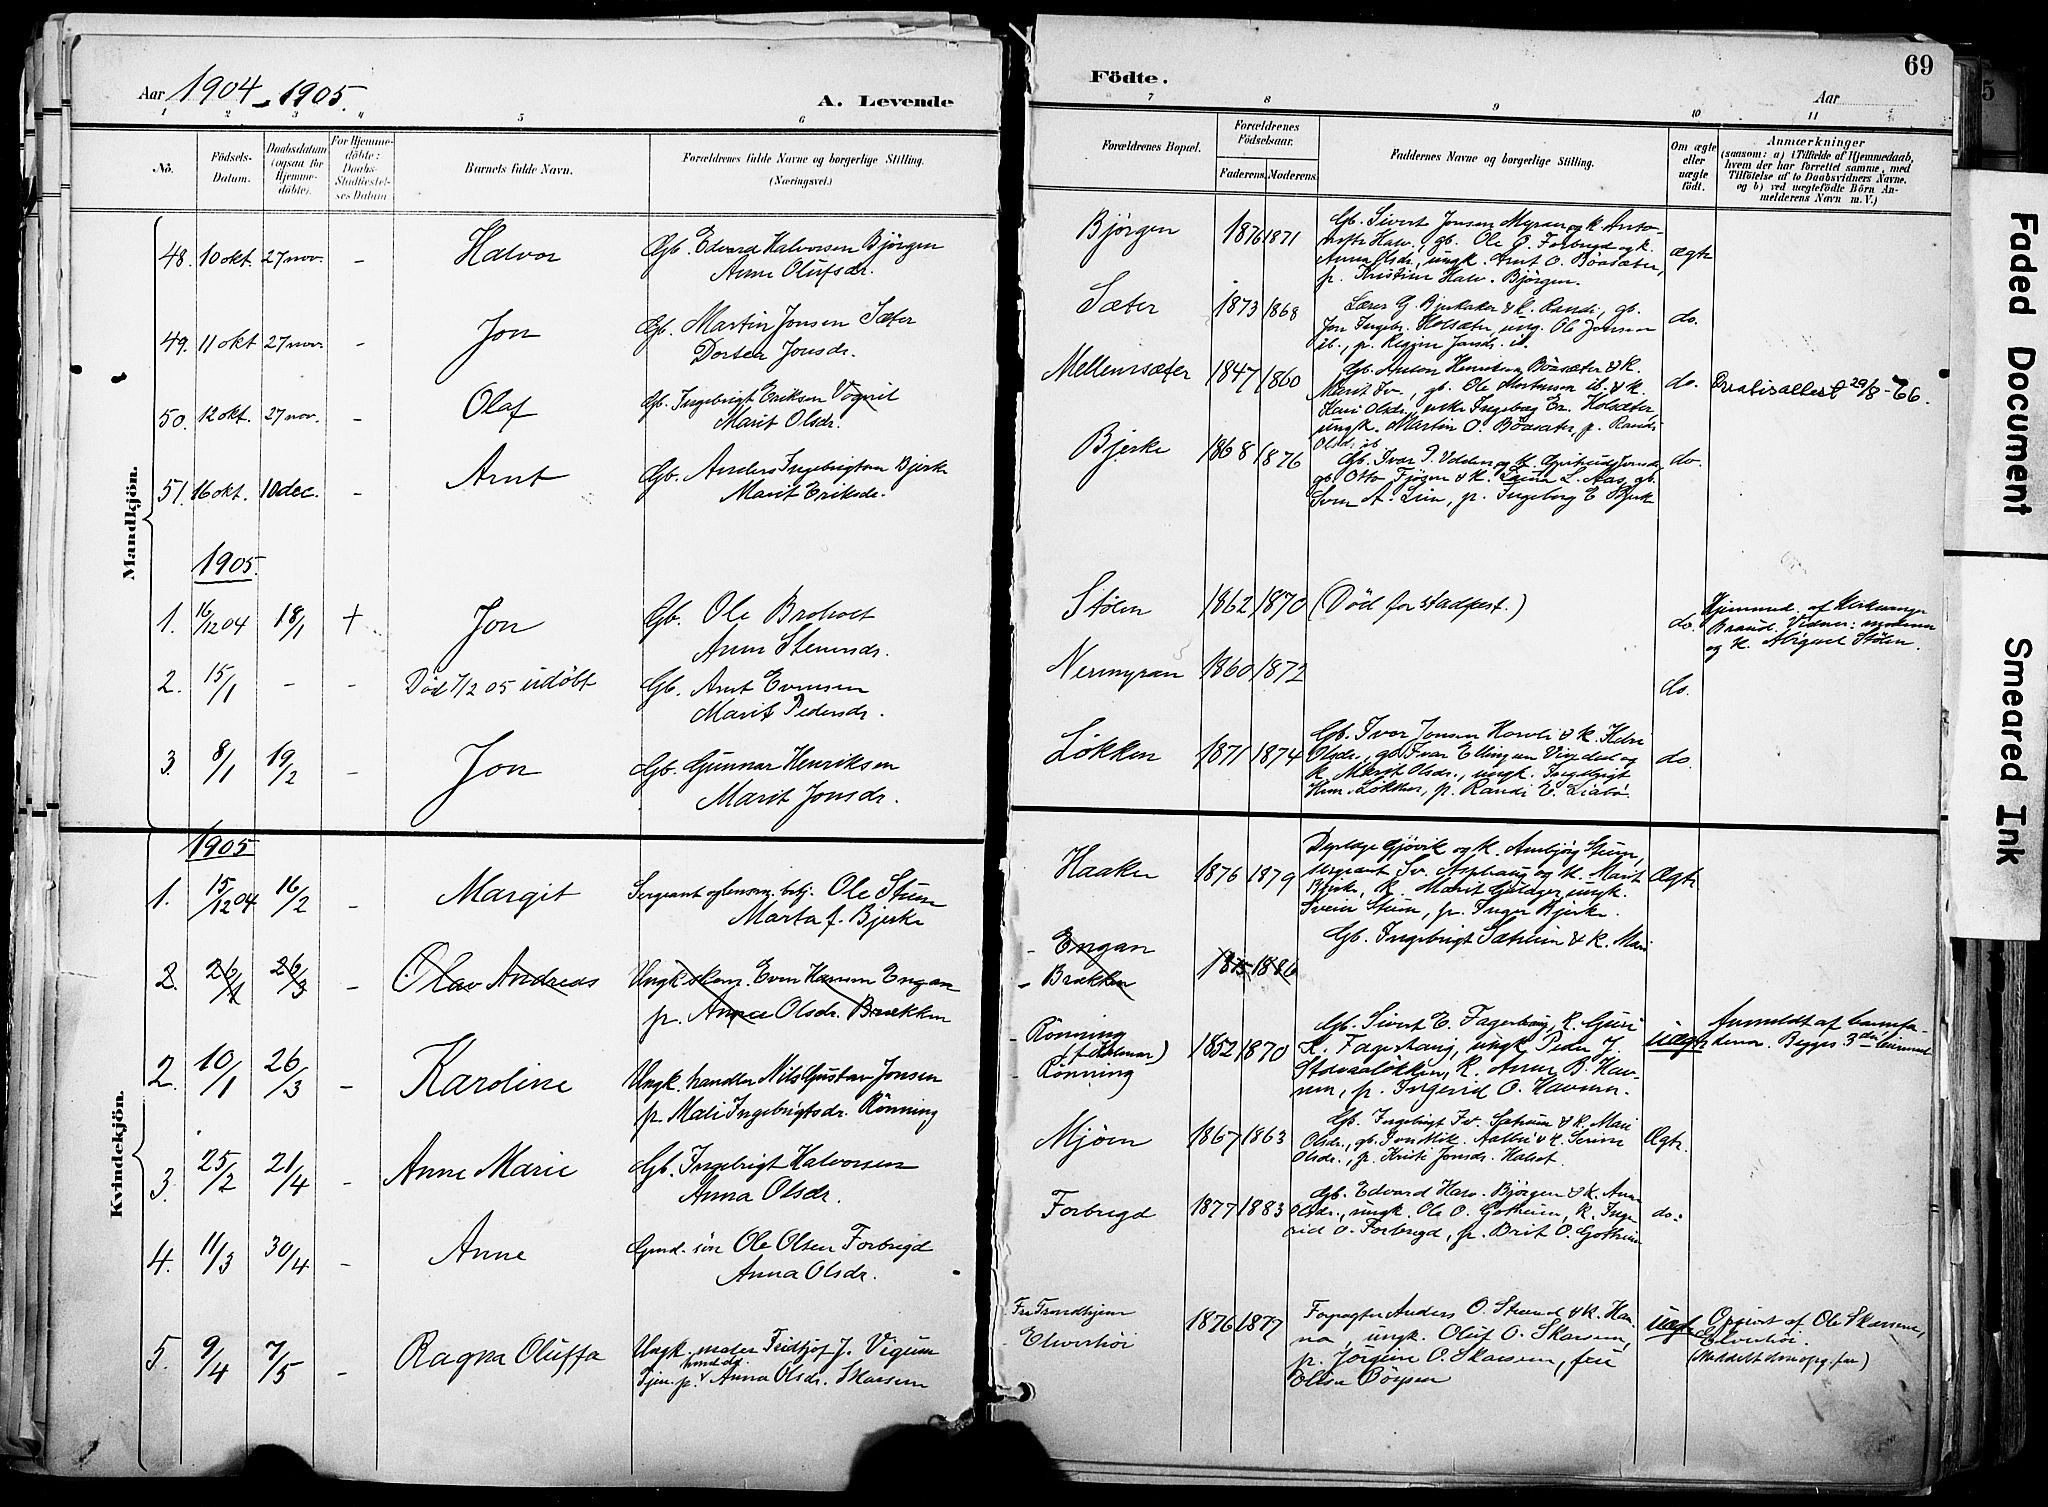 Aar 1904-1905.
A. Levende
Födte.
Aar
69
1 2 3 4 5 6
7 8 9 10 11
No.
Födsels-Datum.
Daabsdatum (ogsaa for Hjemmedöbte).
For Hjemmedöbte: Daabs-Stadfæstelses Datum
Barnets fulde Navn.
Forældrenes fulde Navne og borgerlige Stilling. (Næringsvei.)
Forældrenes Bopæl.
Forældrenes Födselsaar.
Faderens. Moderens.
Faddernes Navne og borgerlige Stilling.
Om ægte eller uægte födt.
Anmærkninger
(saasom: a) i Tilfælde af Hjemmedaab, hvem der har forrettet samme, med Tilföielse af to Daabsvidners Navne, og b) ved uægtefödte Börn Anmelderens Navn m. V.)
Mandkjön.
48. 10 okt. 27 nov. - Halvor
Gb. Edvard Halvorsen Bjørgen
Anne Olufsdr.
Bjørgen 1876 1871
Gb. Sivert Jonsen Myran og k. Anto-
Halv., gb. Ole P. Forbregd og k.
Anna Olsdr., ungk. Arnt O. Böasæter,
p. Kristine Halv. Bjørgen.
ægte
49. 11 okt 27 nov. - Jon
Gb. Martin Jonsen Sæter
Dortea Jonsdr.
Sæter 1873 1868
Lærer G. Bjerkaker & k. Randi, gb.
Jon Ingebr. Holsæter, ung. Ole Jonsen
ib., p. Regine Jonsdr. ib.
do.
50. 12 okt. 27 nov. - Olaf
Gb. Ingebrigt Eriksen Vognil
Marit Olsdr.
Mellemsæter 1847 1860
Gb. Anton Henriksen Böasæter & k.
Marit Iv., gb. Ole Mortensen ib. & k.
Kari Olsdr., enke Ingebørg Er. Holsæter,
ungk. Martin O. Böasæter, p. Randi
Olsdr. ib.
do. 29/8-66.
51. 16 okt. 10 dec. - Arnt
Gb. Anders Ingebrigtsen Bjerke
Marit Eriksdr.
Bjerke 1868 1876
Gb. Ivar P. Vdden og k. Gjertrud Jonsdr.,
gb. Otto Fjögen & k. L. Aas, gb.
Sven A. Lien, p. Ingeborg E Bjerke
do.
1905.
1. 16/12 04 18/1 + Jon
Gb. Ole Broholt
Anne Stensdr.
Stølen 1862 1870 (Död før stadfæst.)
do.
Hjemmed. af Kirkesanger
Vidner:
og k. Abigael Stölen.
2. 15/1 - - Död 7/2 05 udøbt
Gb. Arnt Evensen
Marit Pedersdr.
Nermyran 1860 1872
do.
3. 8/1 19/2 - Jon
Gb. Gunnar Henriksen
Marit Jonsdr.
Løkken 1871 1874
Gb. Ivar Jonsen Horvli & k. Kari
Olsdr., gb. Ivar Ellingsen Vigdal og
k. Marit Olsdr., ungk. Ingebrigt
Henr. Løkken, p. Randi E. Liabö.
do.
Kvindekjön.
1905
1. 15/12 04 16/2 - Margit
Sergeant og lensm. betj. Ole Stuen
Marta f. Bjerke
Haaker 1876 1879
Dyrlæge Gjøvik og k. Anbjørg Stuen,
sergeant Sv. Asphaug og k. Marit
Bjerke, k. Marit Gulager, ungk.
Svein Stuen, p. Inger Bjerke.
Ægte
2. 26/1 26/3 - Olav Andreas
Ungk. skom. Even Hansen Engan
p. Anne Olsdr. Brækken
- Engan
- Brækken
1875 1886
Gb. Ingebrigt Sætrum & k. Mari
2. 10/1 26/3 - Karoline
Ungk. handler Nils Gustav Jonsen
p. Mali Ingebrigtsdr. Rönning
- Rönning
(f. Kalmar)
- Rönning
1852 1870
Gb. Sivert E. Fagerhaug, k. Guri
K. Fagerhaug, ungk. Peder J.
Stdsaaløkken, k. Anne B. Hav-
nen, p. Ingerid O. Havnen.
Uægte
Anmeldt af barnefa-
deren. Begges 3die
3. 25/2 21/4 - Anne Marie
Gb. Ingebrigt Halvorsen
Anna Olsdr.
Mjøen 1867 1863
Gb. Ingebrigt Iv. Sætrum & k. Mari
Olsdr., gb. Jon Mik. Aalbu & k. Serine
Olsdr., p. Kristi Jonsdr. Halset.
Ægte
4. 11/3 30/4 - Anne
Gmd. søn Ole Olsen Forbregd
Anna Olsdr.
Forbregd 1877 1883
Gb. Edvard Halv. Bjørgen & k. Anne
Olsdr., ungk. Ole O. Gotheim, k. Inge-
rid O. Forbregd, p. Brit O. Gotheim
do.
5. 9/4 7/5 - Ragna Oluffa
Ungk. maler Fridtjof J. Vigum
Tjen. p. Anna Olsdr. Skarsem
Fra Trondhjem
Elverhöi
1876 1877
Fogfgter Anders O. Strand & k. Han-
na, ungk. Oluf O. Skarsem,
p. Jörgine O. Skarsem, frk
Elise Börsen
Uægte
Opgivet af Ole Skarsem,
Elverhöi.
(Meddelt den opg. far)
Faded Document
Smeared Ink